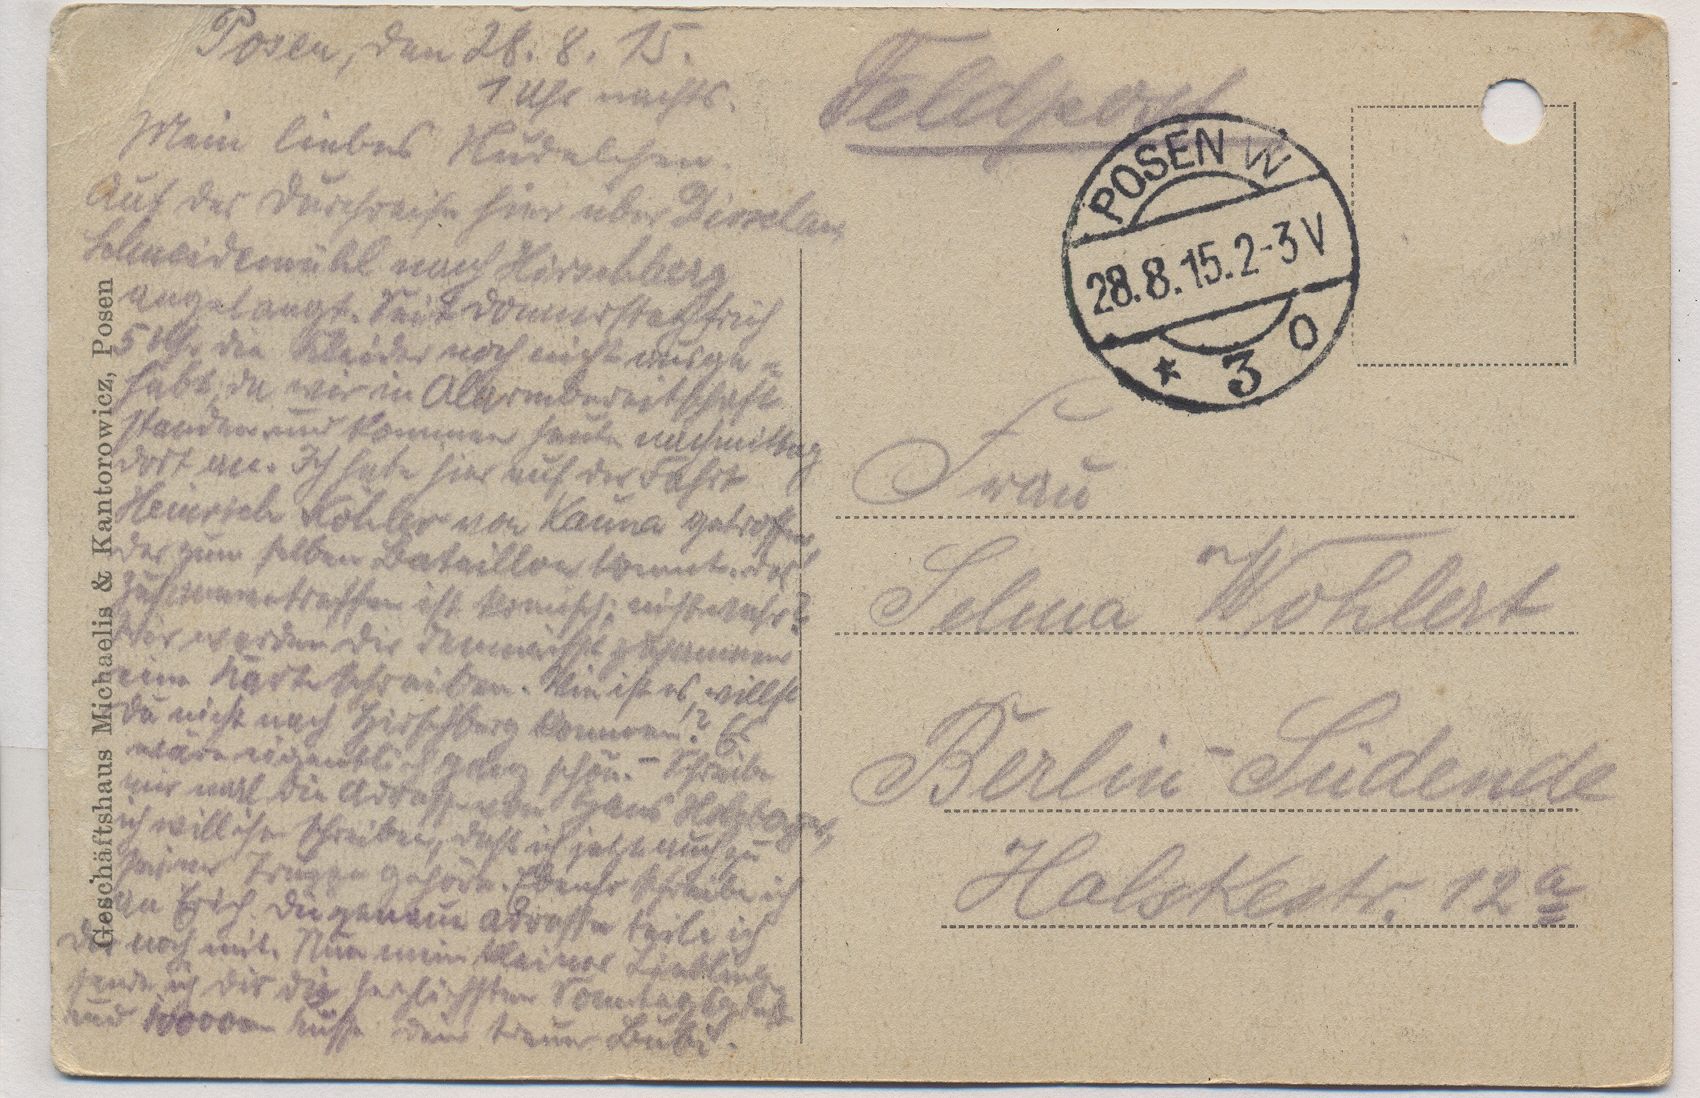 Posen, den 28. 8. 15.
1 Uhr nachts.
Mein liebes Nudelchen.
Auf der Durchreise hier über Dirschau
Schneidemühl nach Hirschberg
angelangt. Seit Donnerstag früh
5 Uhr die Kleider noch nicht ausge=
habt, da wir in Alarmbereitschaft
standen und kommen heute nachmittag
dort an. Ich habe hier auf der Fahrt
Heinrich Köhler von Kauna getroffen,
der zum selben Bataillon kommt. Das
Zusammentreffen ist komisch; nicht wahr?
Wir werden Dir demnächst zusammen
eine Karte schreiben. Wie ist es, willst
Du nicht nach Hirschberg kommen? Es
wäre eigentlich ganz schön. – Schreibe
mir mal die Adresse von Hans
ich will ihm schreiben, daß ich jetzt auch zu
seiner Truppe gehöre. Ebenso schreibe ich
an Erich. Die genaue Adresse teile ich
Dir noch mit. Nun mein kleiner Liebling
sende ich Dir die herzlichsten Sonntagsgrüße
und Küsse Dein treuer Bubi.
Geschäftshaus Michaelis & Kantorowicz, Posen
Feldpost
POSEN W
28.8.15.2-3V
* 3 o
Frau
Selma Wohlert
Berlin-Südende
Halskestr. 12a